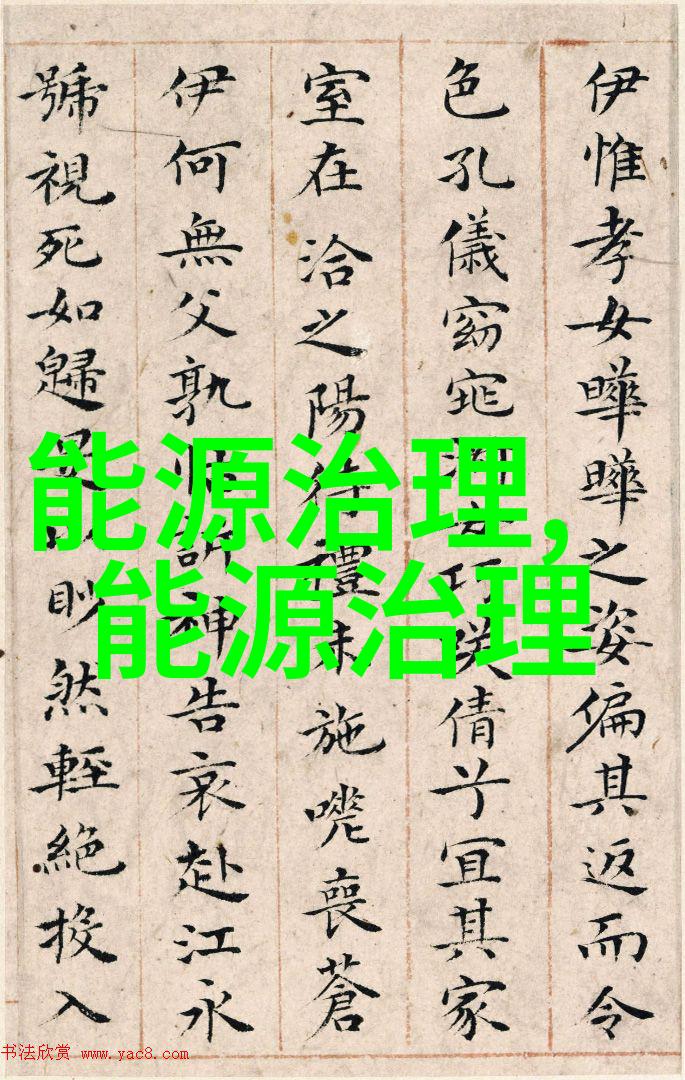 伊惟孝女曄曄之姿偏其返而令
色孔儀窈窕淑女巧笑倩兮宜其家
室在洽之陽待禮未施嗟喪蒼
伊何無父孰怙訴神告哀赴江永
號視死如歸是以眇然輕絕投入
能源治理,
能源治理
书法欣赏 www.yac8.com